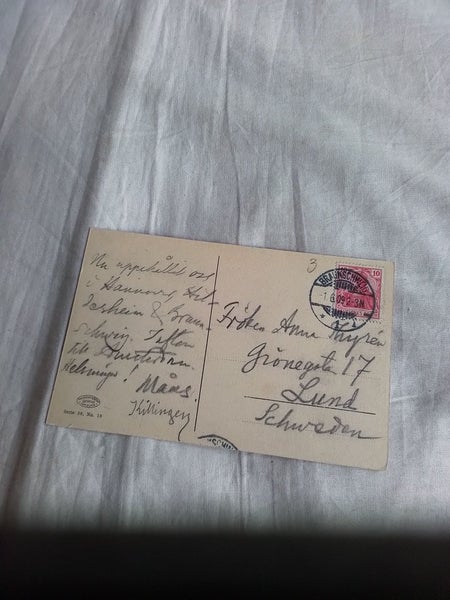 Nu uppehållit oss
i Hannover, Hil-
desheim & Braun-
schweig. I afton
till Amsterdam.
Helsningar! Måns.
Killingen
Serie 56, No. 15
3
BRAUNSCHWEIG
1.6.09.2-3N.
10
Fröken Anna Thyrén
Grönegata 17
Lund
Schweden